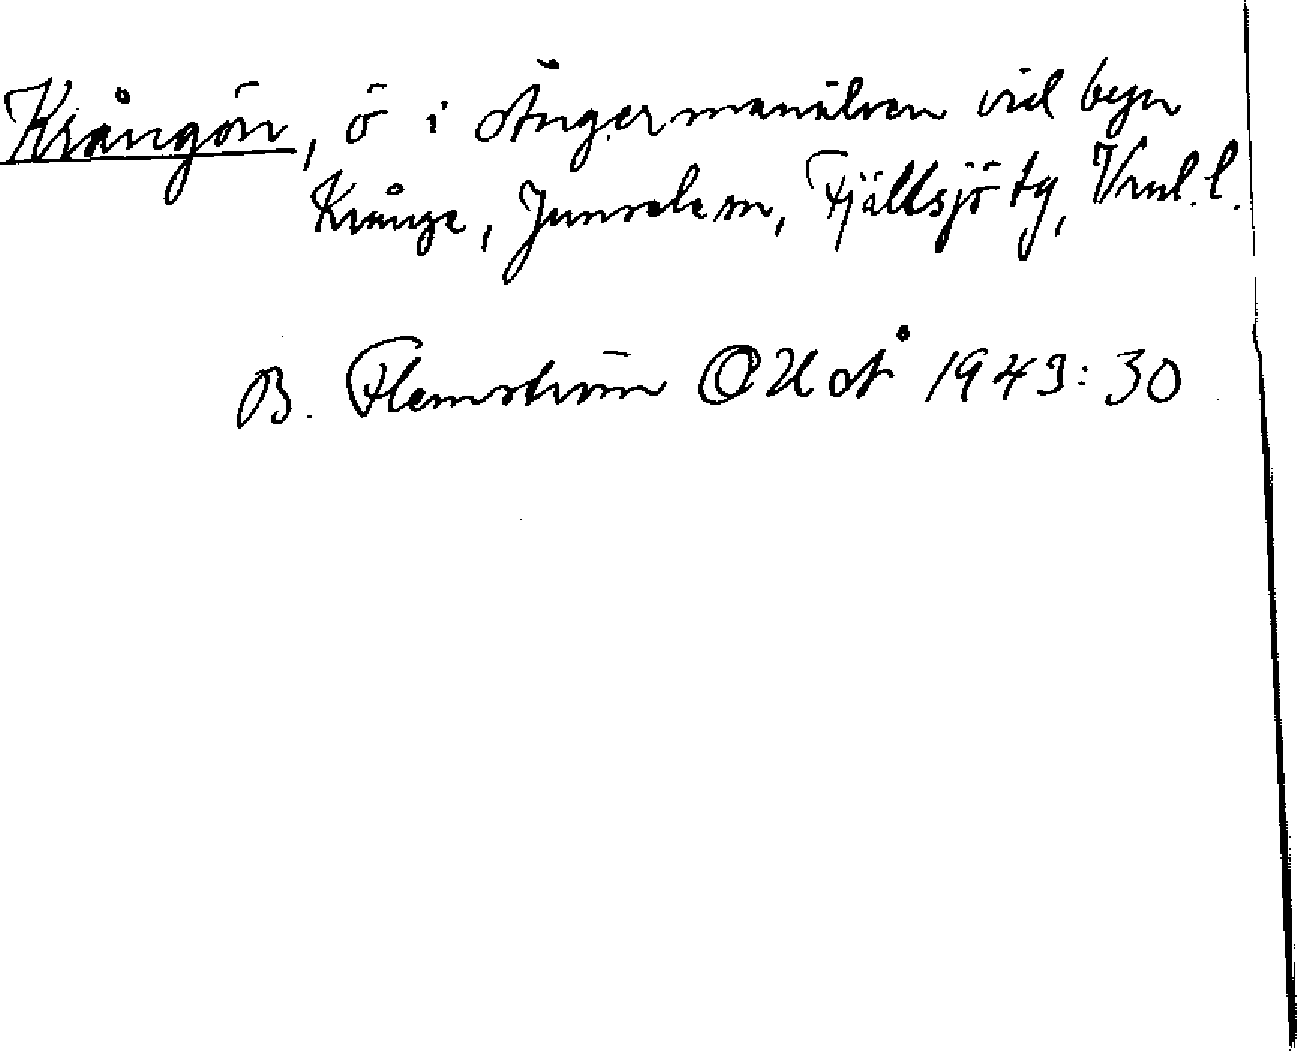 Krångön, ö i Ångermanälven vid byn
Krånge, Junsele sn, Fjällsjö tg, Vnl. l.
B. Flemström OUÅ 1943:30